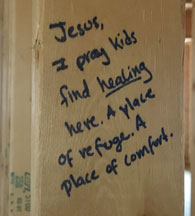 Jesus,
I pray kids
find healing
here. A place
of refuge. A
place of comfort.